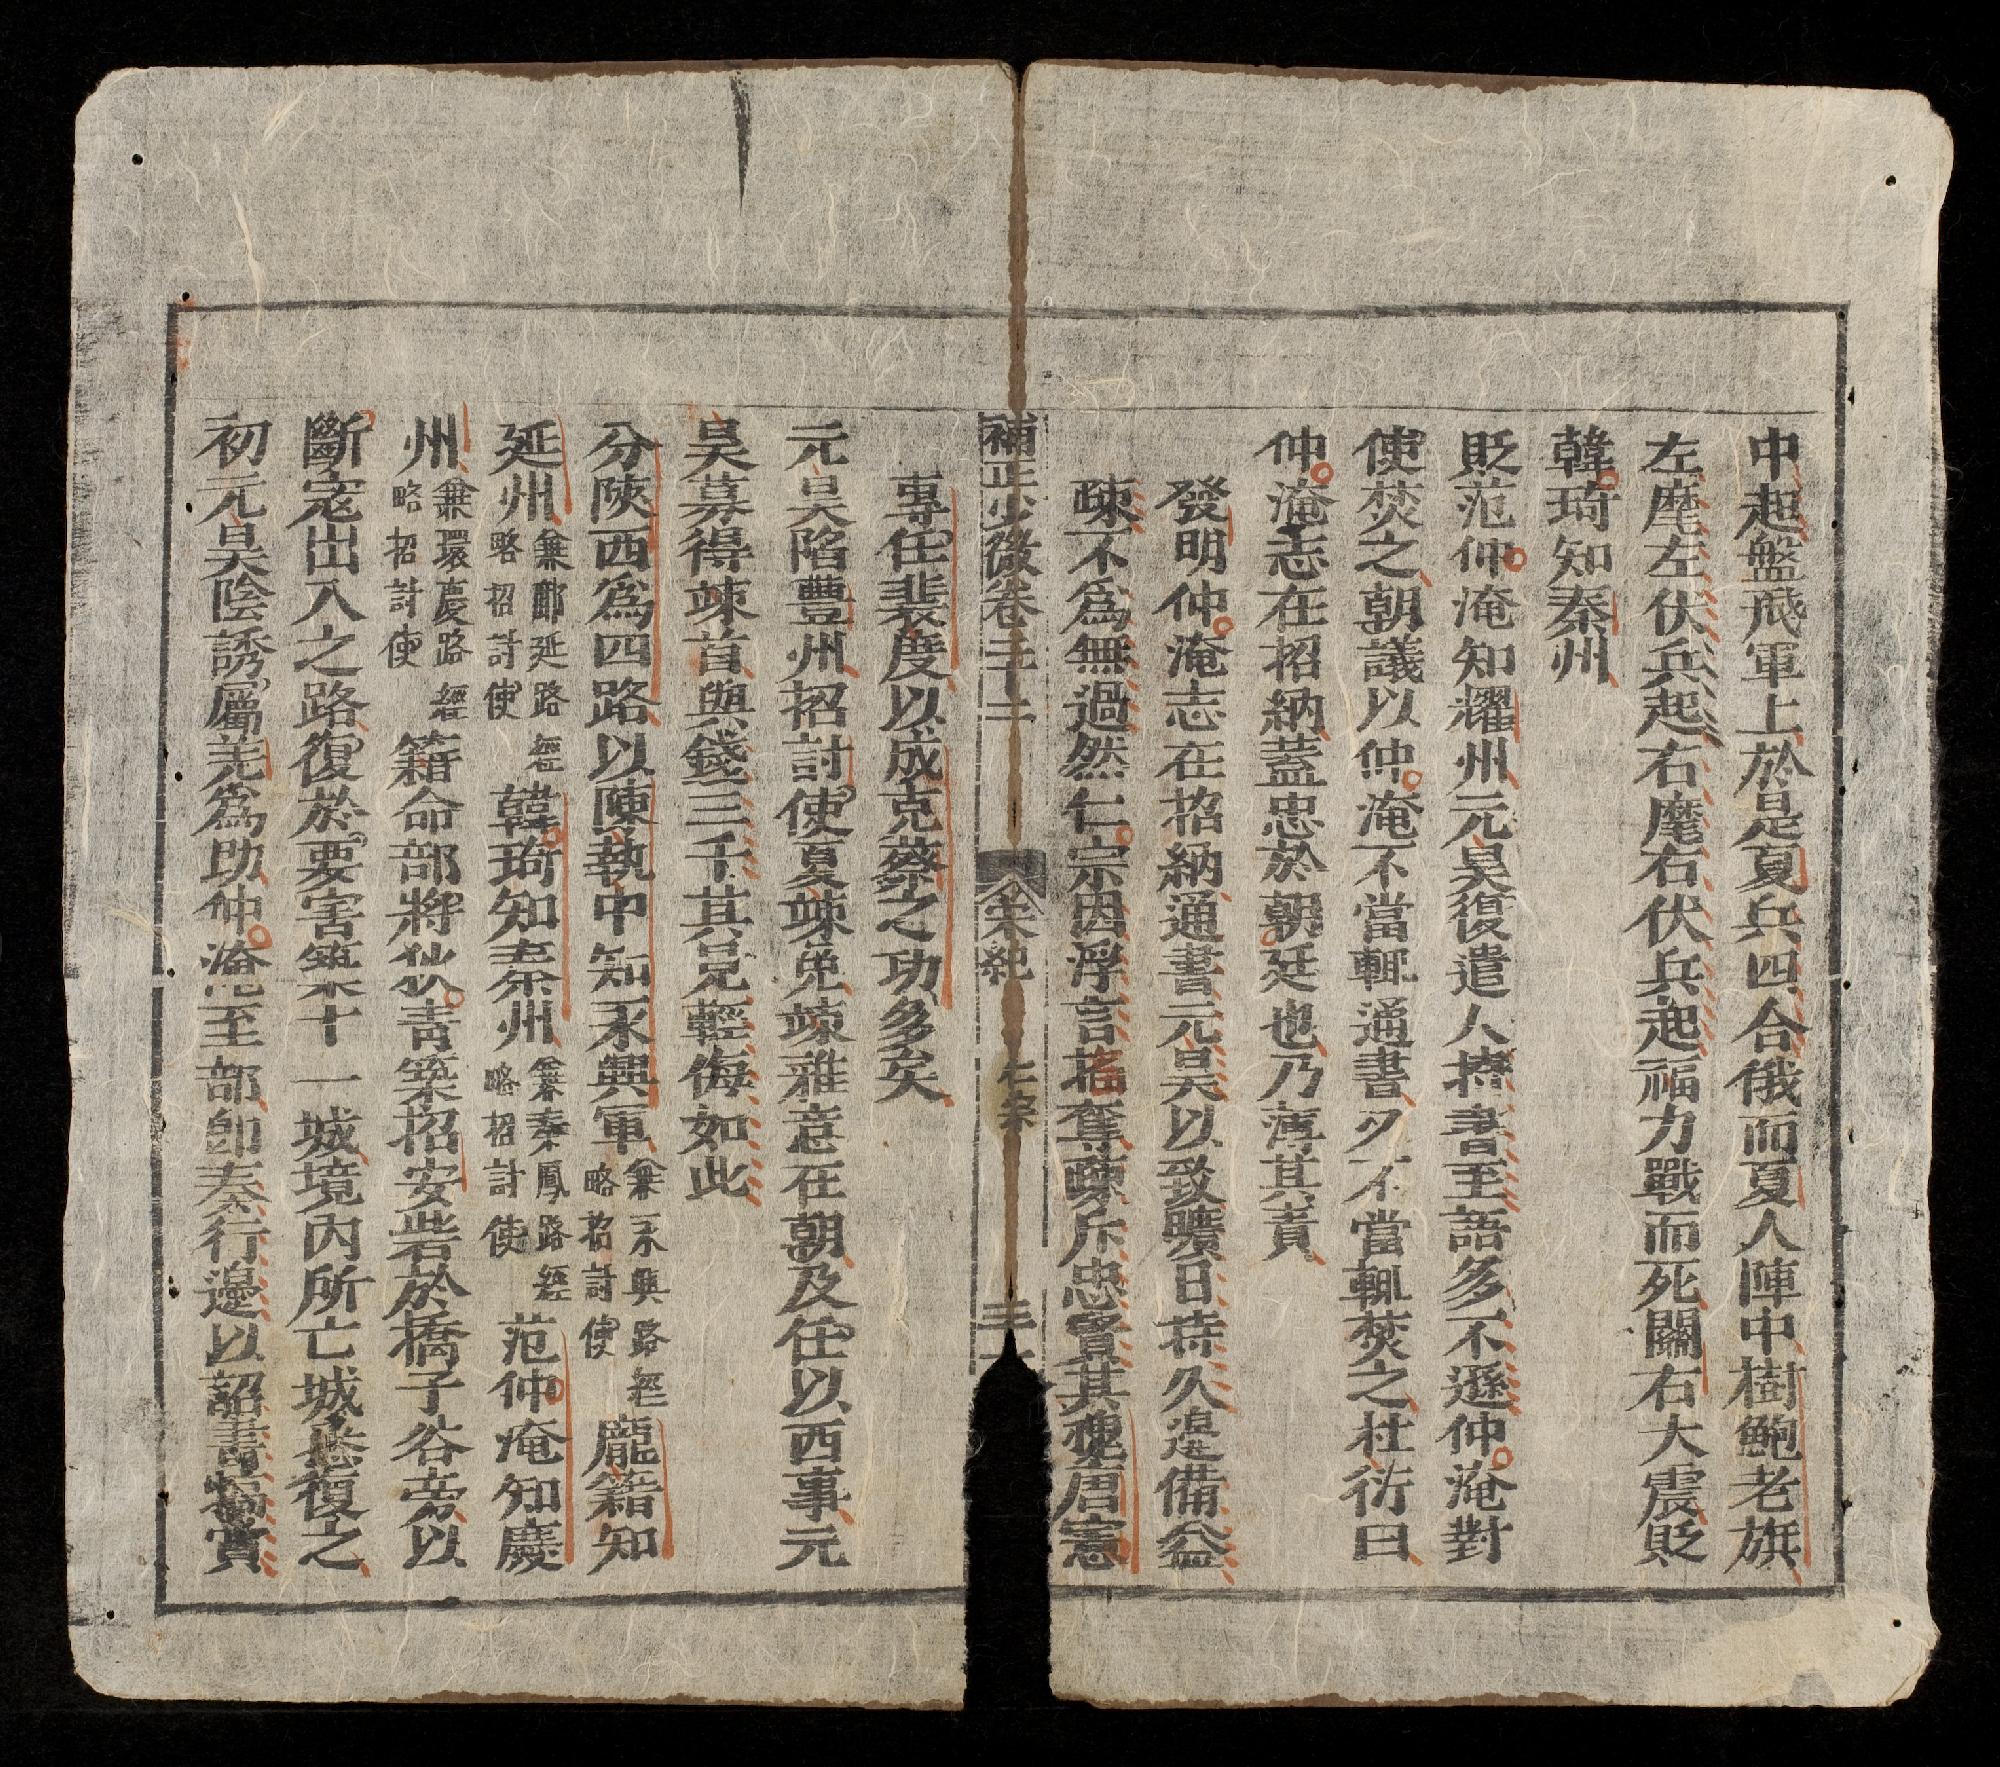 中起盤飛軍上於是夏兵四合俄而夏人陣中樹鮑老旗
左麾左伏兵起右麾右伏兵起福力戰而死關右大震貶
韓琦知秦州
貶范仲淹知耀州元昊復遣人賫書至語多不遜仲淹對
使焚之朝議以仲淹不當輒通書又不當輒焚之杜衍曰
仲淹志在招納蓋忠於朝廷也乃薄其責
發明仲淹志在招納通書元昊以致曠日持久邊備益
疎不爲無過然仁宗因浮言搖奪疎斥忠賢其愧唐憲
補正少微卷三十二 宋紀 仁宗 三十
專任裴度以成克蔡之功多矣
元昊陷豐州招討使夏竦免竦雅意在朝及任以西事元
昊募得竦首與錢三千其見輕侮如此
分陝西爲四路以陳執中知永興軍兼永興路經略招討使龐籍知
延州兼鄜延路經略招討使韓琦知秦州兼秦鳳路經略招討使范仲淹知慶
州兼環慶路經略招討使籍命部將狄青築招安砦於橋子谷旁以
斷寇出入之路復於要害築十一城境內所亡城悉復之
初元昊陰誘屬羌爲助仲淹至部即奏行邊以詔書犒賞